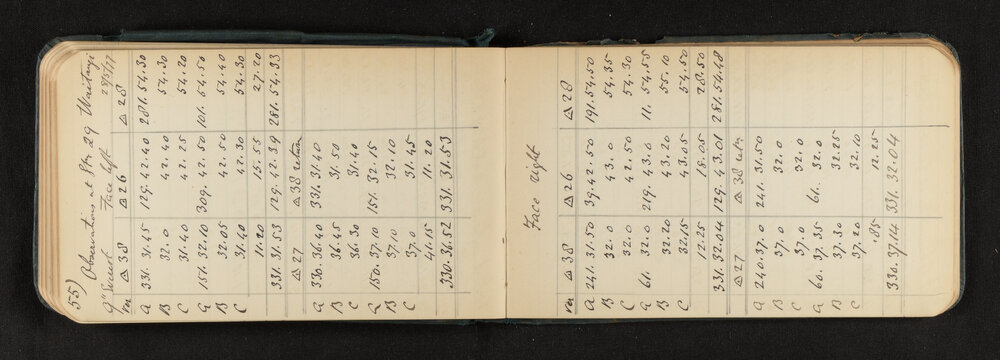 55) Observations at Stn 29 Waitangi
9" Face left 28/5/17
m △38 △26 △28
A 331.31.45 129.42.40 281.54.30
B 32.0 42.40 54.30
C 31.40 42.25 54.20
A 151.32.10 309.42.50 101.54.50
B 32.05 42.50 54.40
C 31.40 42.30 54.30
11.20 15.55 27.20
331.31.53 129.42.39 281.54.33
△27 △38 return
A 330.36.40 331.31.40
B 36.45 31.50
C 36.30 31.40
A 150.37.10 151.32.15
B 37.10 32.10
C 37.0 31.45
41.15 11.20
330.36.52 331.31.53
Face right
m △38 △26 △28
A 241.31.50 39.42.50 191.54.50
B 32.0 43.0 54.35
C 32.0 42.50 54.30
A 61.32.0 219.43.0 11.54.55
B 32.20 43.20 55.10
C 32.15 43.05 54.50
12.25 18.05 28.50
331.32.04 129.43.01 281.54.48
△27 △38 retn
A 240.37.0 241.31.50
B 37.0 32.0
C 37.0 32.0
A 60.37.35 61.32.0
B 37.30 32.25
C 37.20 32.10
.85 12.25
330.37.14 331.32.04